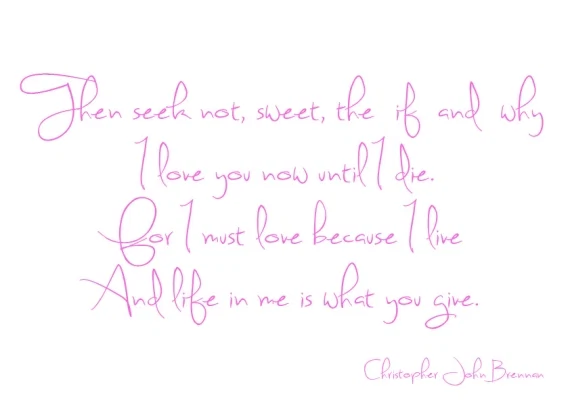 Then seek not, sweet, the if and why
I love you now until I die.
For I must love because I live
And life in me is what you give.
Christopher John Brennan